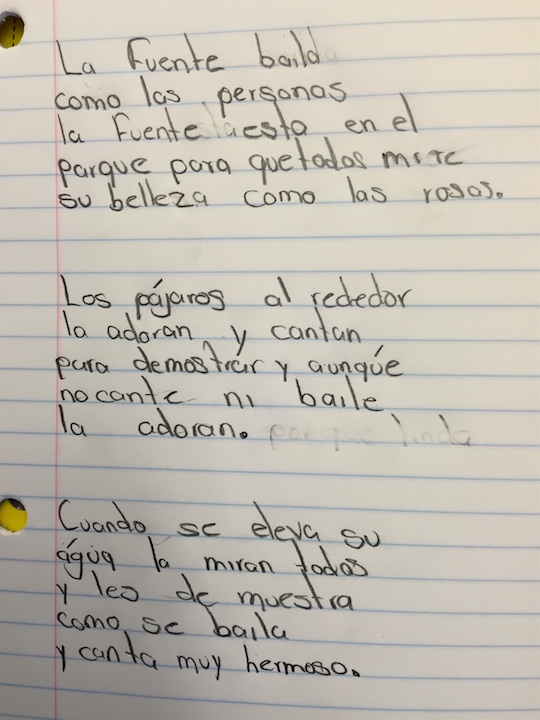 La Fuente baila
como las personas
la Fuente esta en el
parque para que todos mire
su belleza como las rosas.
Los pájaros al rededor
la adoran y cantan
para demostrar y aunqúe
no cante ni baile
la adoran. porque linda
Cuando se eleva su
água la miran todos
y les de muestra
como se baila
y canta muy hermoso.